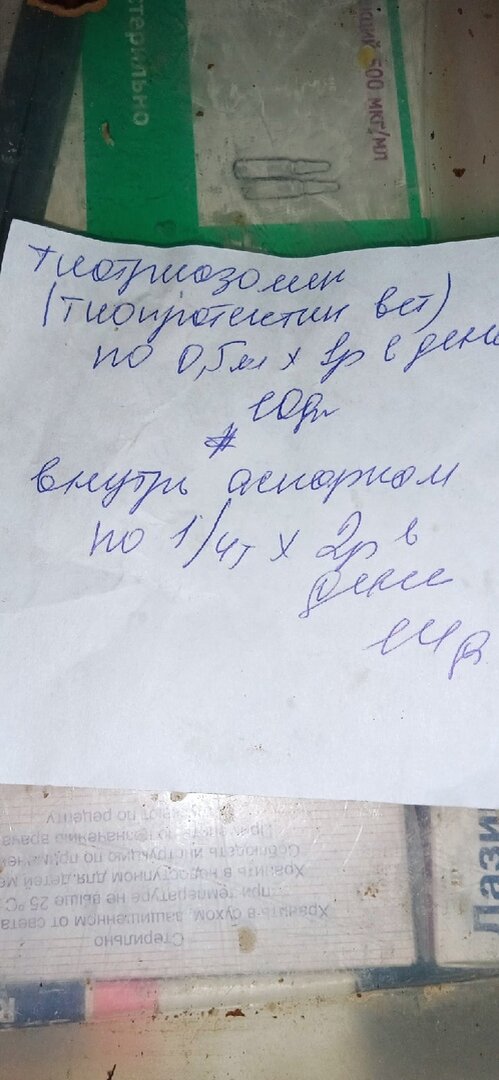 стерильно
500 мкг/мл
тиотриазолин
(тиопротектин вет)
по 0,5мл х 1р в день
10дн
внутрь аспаркам
по 1/4т х 2р в
день
14д
Стерильно
Хранить в сухом, защищенном от света
при температуре не выше 25 °С
Хранить в недоступном для детей ме
Соблюдать инструкцию по примене
Применять по назначению врача
по рецепту